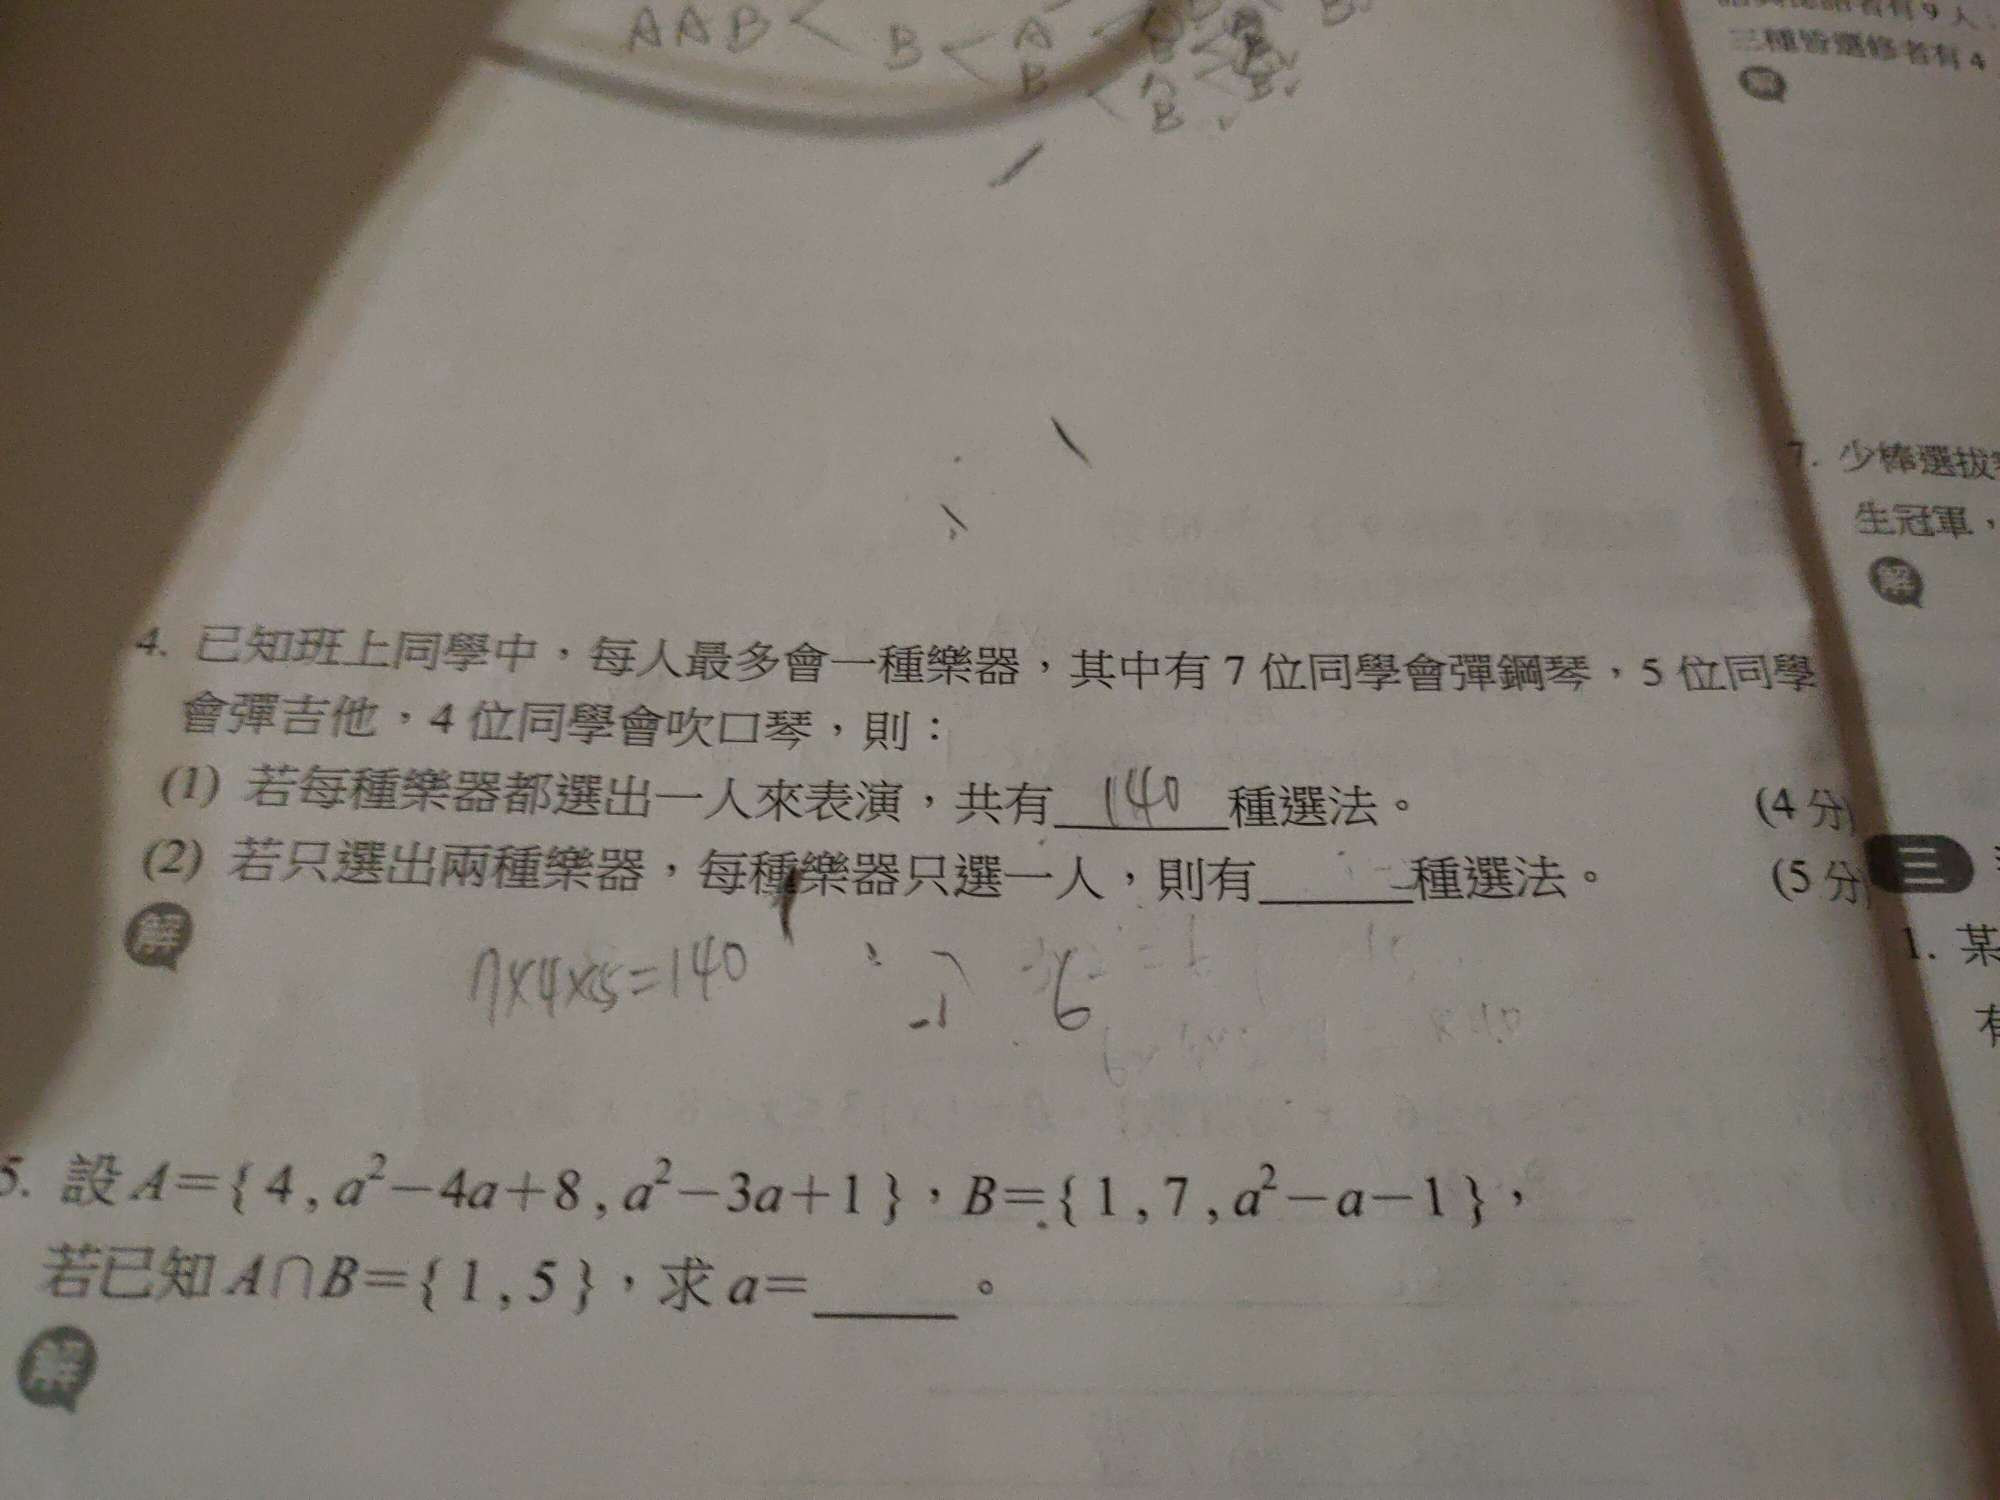 AAB B A B
B
三種皆選修者有 4
4. 已知班上同學中，每人最多會一種樂器，其中有 7 位同學會彈鋼琴，5 位同學
會彈吉他，4 位同學會吹口琴，則：
(1) 若每種樂器都選出一人來表演，共有 140 種選法。 (4 分)
(2) 若只選出兩種樂器，每種樂器只選一人，則有______種選法。 (5 分)
解
7×4×5=140
5. 設 A={ 4 , a²−4a+8 , a²−3a+1 }，B={ 1 , 7 , a²−a−1 }，
若已知 A∩B={ 1 , 5 }，求 a=______。
解
7. 少棒選拔
生冠軍，
解
三
1. 某
有